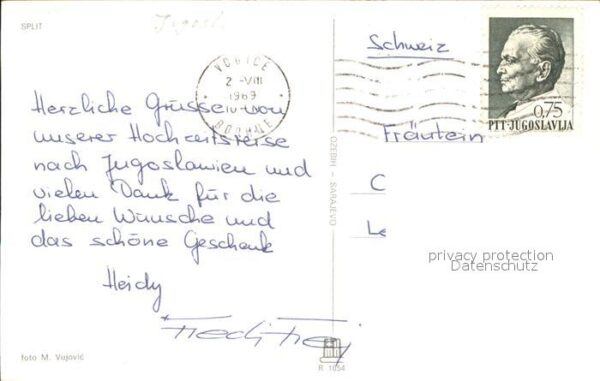 SPLIT
VODICE
2-VIII
1969
Schweiz
0,75
PTT-JUGOSLAVIJA
Herzliche Grüsse von
unserer Hochzeitsreise
nach Jugoslawien und
vielen Dank für die
lieben Wünsche und
das schöne Geschenk
Heidy
Fräulein
OZEBIH - SARAJEVO
privacy protection
Datenschutz
foto M. Vujović
R 1054